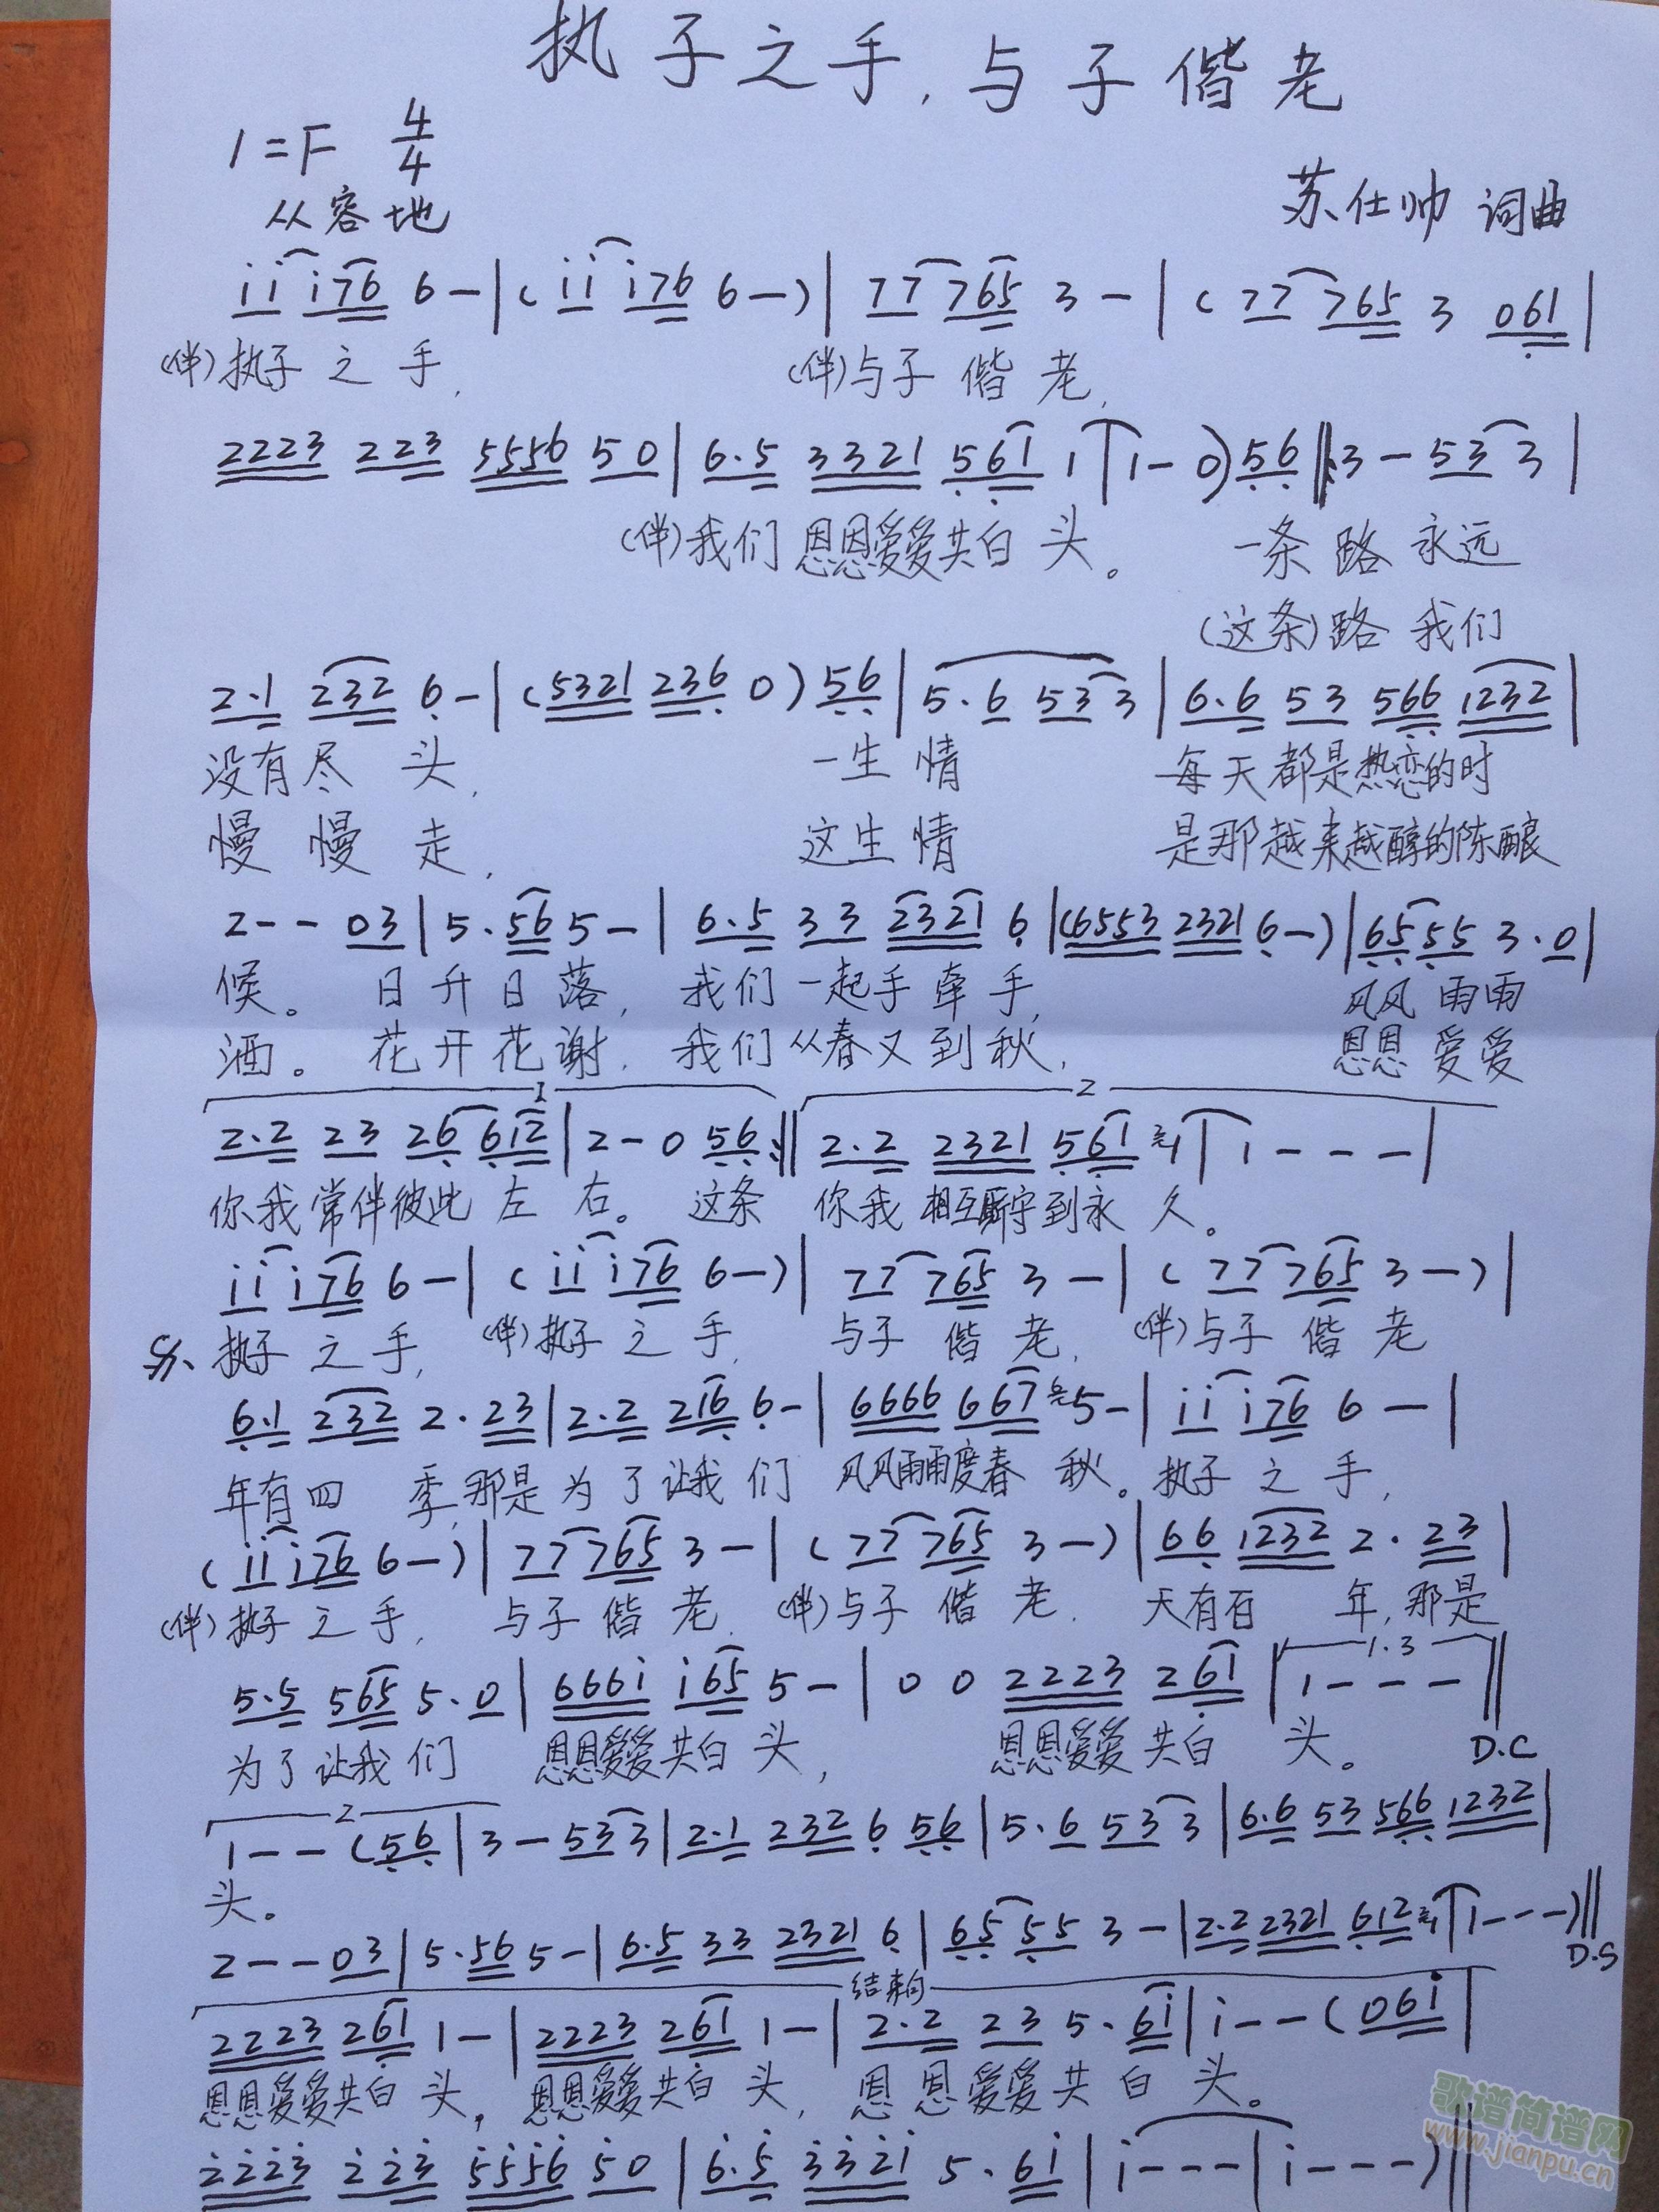 执子之手,与子偕老
1=F 4/4
从容地
苏仕帅 词曲
i i i 7 6 6 — | ( i i i 7 6 6 — ) | 7 7 7 6 5 3 — | ( 7 7 7 6 5 3 0 6 1 |
(伴)执子 之 手, (伴)与子 偕 老,
2223 223 5556 50 | 6.5 3321 561 1 | 1 — 0 ) 56 ‖: 3 — 53 3 |
(伴)我们 恩恩爱爱共白 头。 一条 路 永远
(这条)路 我们
2.1 232 6 — | ( 5321 236 0 ) 56 | 5.6 53 3 | 6.6 53 566 1232 |
没有尽 头, 一生 情 每天都是热恋的时
慢 慢 走, 这生 情 是那越来越醇的陈酿
2 — — 03 | 5.56 5 — | 6.5 33 2321 6 | (6553 2321 6 — ) | 65 55 3.0 |
候。 日升日落, 我们一起手牵手, 风风雨雨
酒。 花开花谢, 我们从春又到秋, 恩恩爱爱
1 2
2.2 23 26 612 | 2 — 0 56 :‖ 2.2 2321 561 1 | 1 — — — |
你我常伴彼此 左 右。 这条 你我 相互厮守到永 久。
i i i 7 6 6 — | ( i i i 7 6 6 — ) | 7 7 7 6 5 3 — | ( 7 7 7 6 5 3 — ) |
𝄋 执子 之 手, (伴)执子 之 手, 与子 偕 老, (伴)与子 偕 老
6.1 232 2.23 | 2.2 216 6 — | 6666 667 5 — | i i i 7 6 6 — |
年有四 季,那是为了让我们 风风雨雨度春 秋。 执子 之 手,
( i i i 7 6 6 — ) | 7 7 7 6 5 3 — | ( 7 7 7 6 5 3 — ) | 66 1232 2.23 |
(伴)执子 之 手, 与子 偕 老, (伴)与子 偕 老. 天有百 年,那是
1.3
5.5 565 5.0 | 666i i65 5 — | 0 0 2223 261 | 1 — — — ‖
为了让我们 恩恩爱爱共白 头, 恩恩爱爱 共白 头。 D.C
2
1 — — (56 | 3 — 53 3 | 2.1 232 6 56 | 5.6 53 3 | 6.6 53 566 1232 |
头。
2 — — 03 | 5.56 5 — | 6.5 33 2321 6 | 65 55 3 — | 2.2 2321 612 1 | 1 — — — ) ‖
D.S
结束句
2223 261 1 — | 2223 261 1 — | 2.2 23 5.6i | i — — ( 06i |
恩恩爱爱共白 头, 恩恩爱爱共白 头, 恩恩爱爱共白头。
2223 223 5556 50 | 6.5 3321 5.6i | i — — — | i — — — ) ‖
歌谱简谱网
www.jianpu.cn